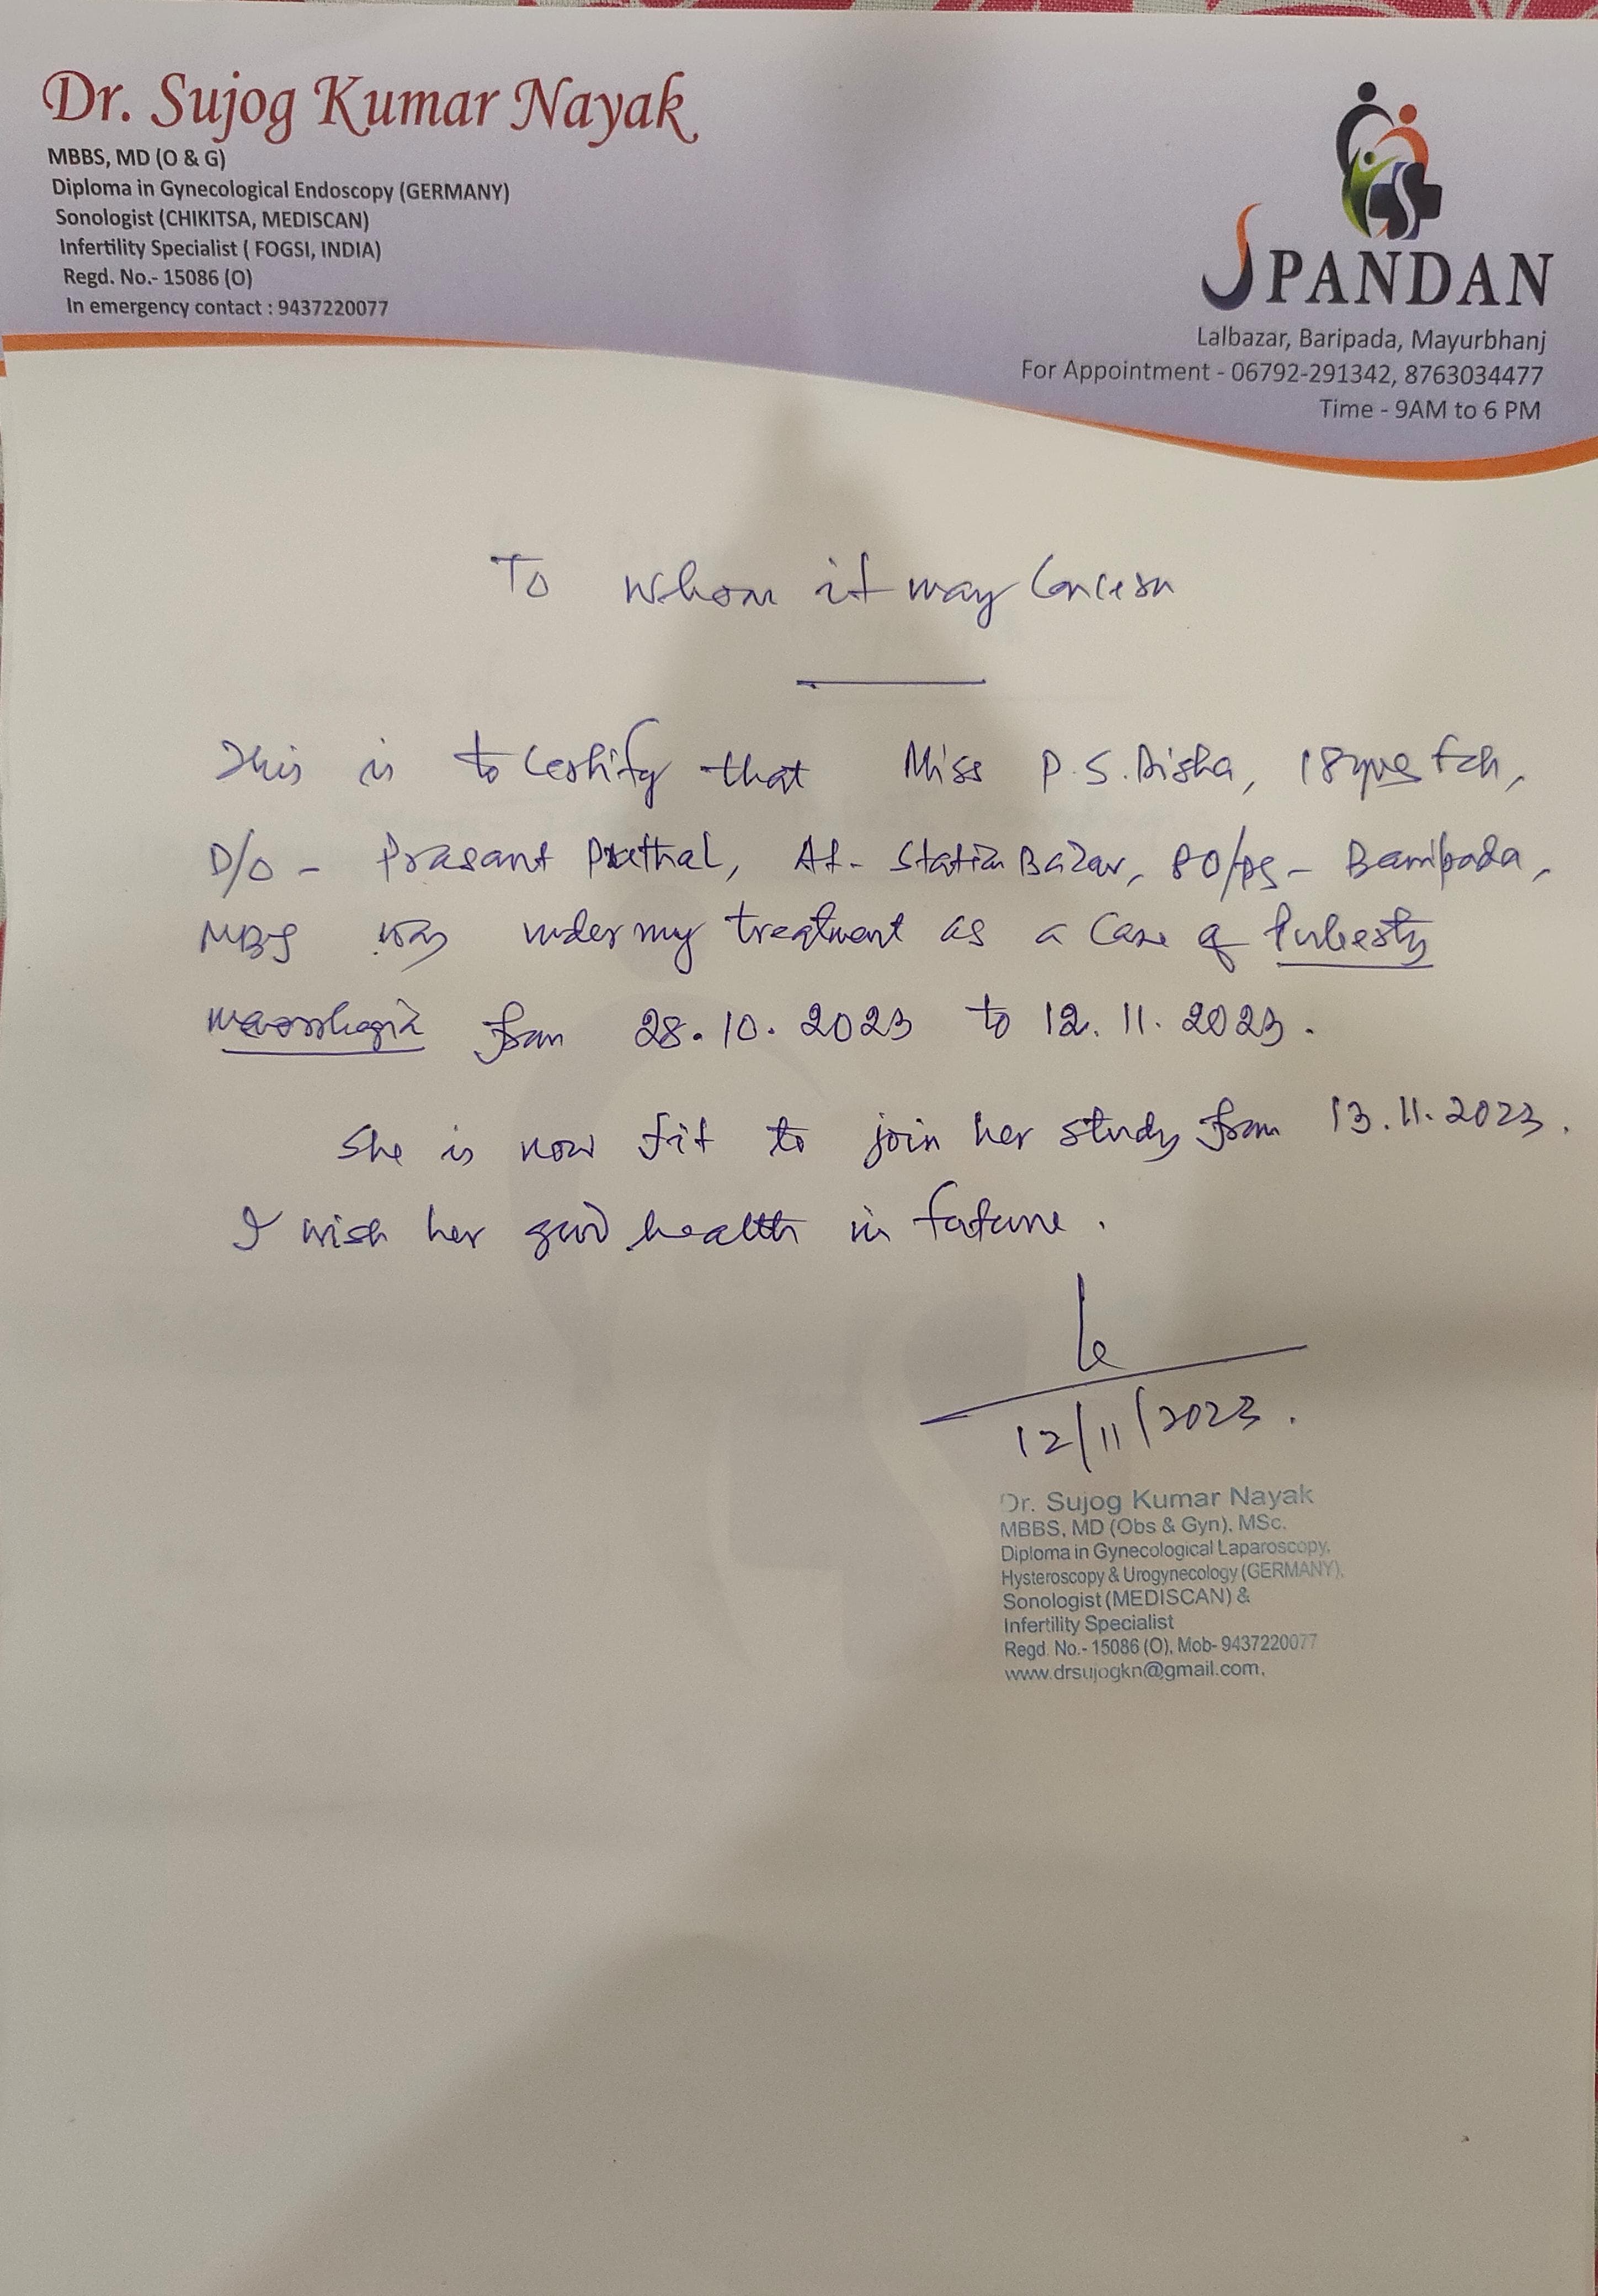 Dr. Sujog Kumar Nayak
MBBS, MD (O & G)
Diploma in Gynecological Endoscopy (GERMANY)
Sonologist (CHIKITSA, MEDISCAN)
Infertility Specialist ( FOGSI, INDIA)
Regd. No.- 15086 (O)
In emergency contact : 9437220077
SPANDAN
Lalbazar, Baripada, Mayurbhanj
For Appointment - 06792-291342, 8763034477
Time - 9AM to 6 PM
To Whom it may Concern
This is to certify that Miss P.S. Disha, 18yrs
D/O - Prasant, At- Station Bazar, PO/PS- Baripada,
MBJ was under my treatment as a case of Puberty
menorrhagia from 28.10.2023 to 12.11.2023.
She is now fit to join her study from 13.11.2023.
I wish her good health in future.
12/11/2023.
Dr. Sujog Kumar Nayak
MBBS, MD (Obs & Gyn), MSc.
Diploma in Gynecological Laparoscopy,
Hysteroscopy & Urogynecology (GERMANY),
Sonologist (MEDISCAN) &
Infertility Specialist
Regd. No.- 15086 (O), Mob- 9437220077
www.drsujogkn@gmail.com.